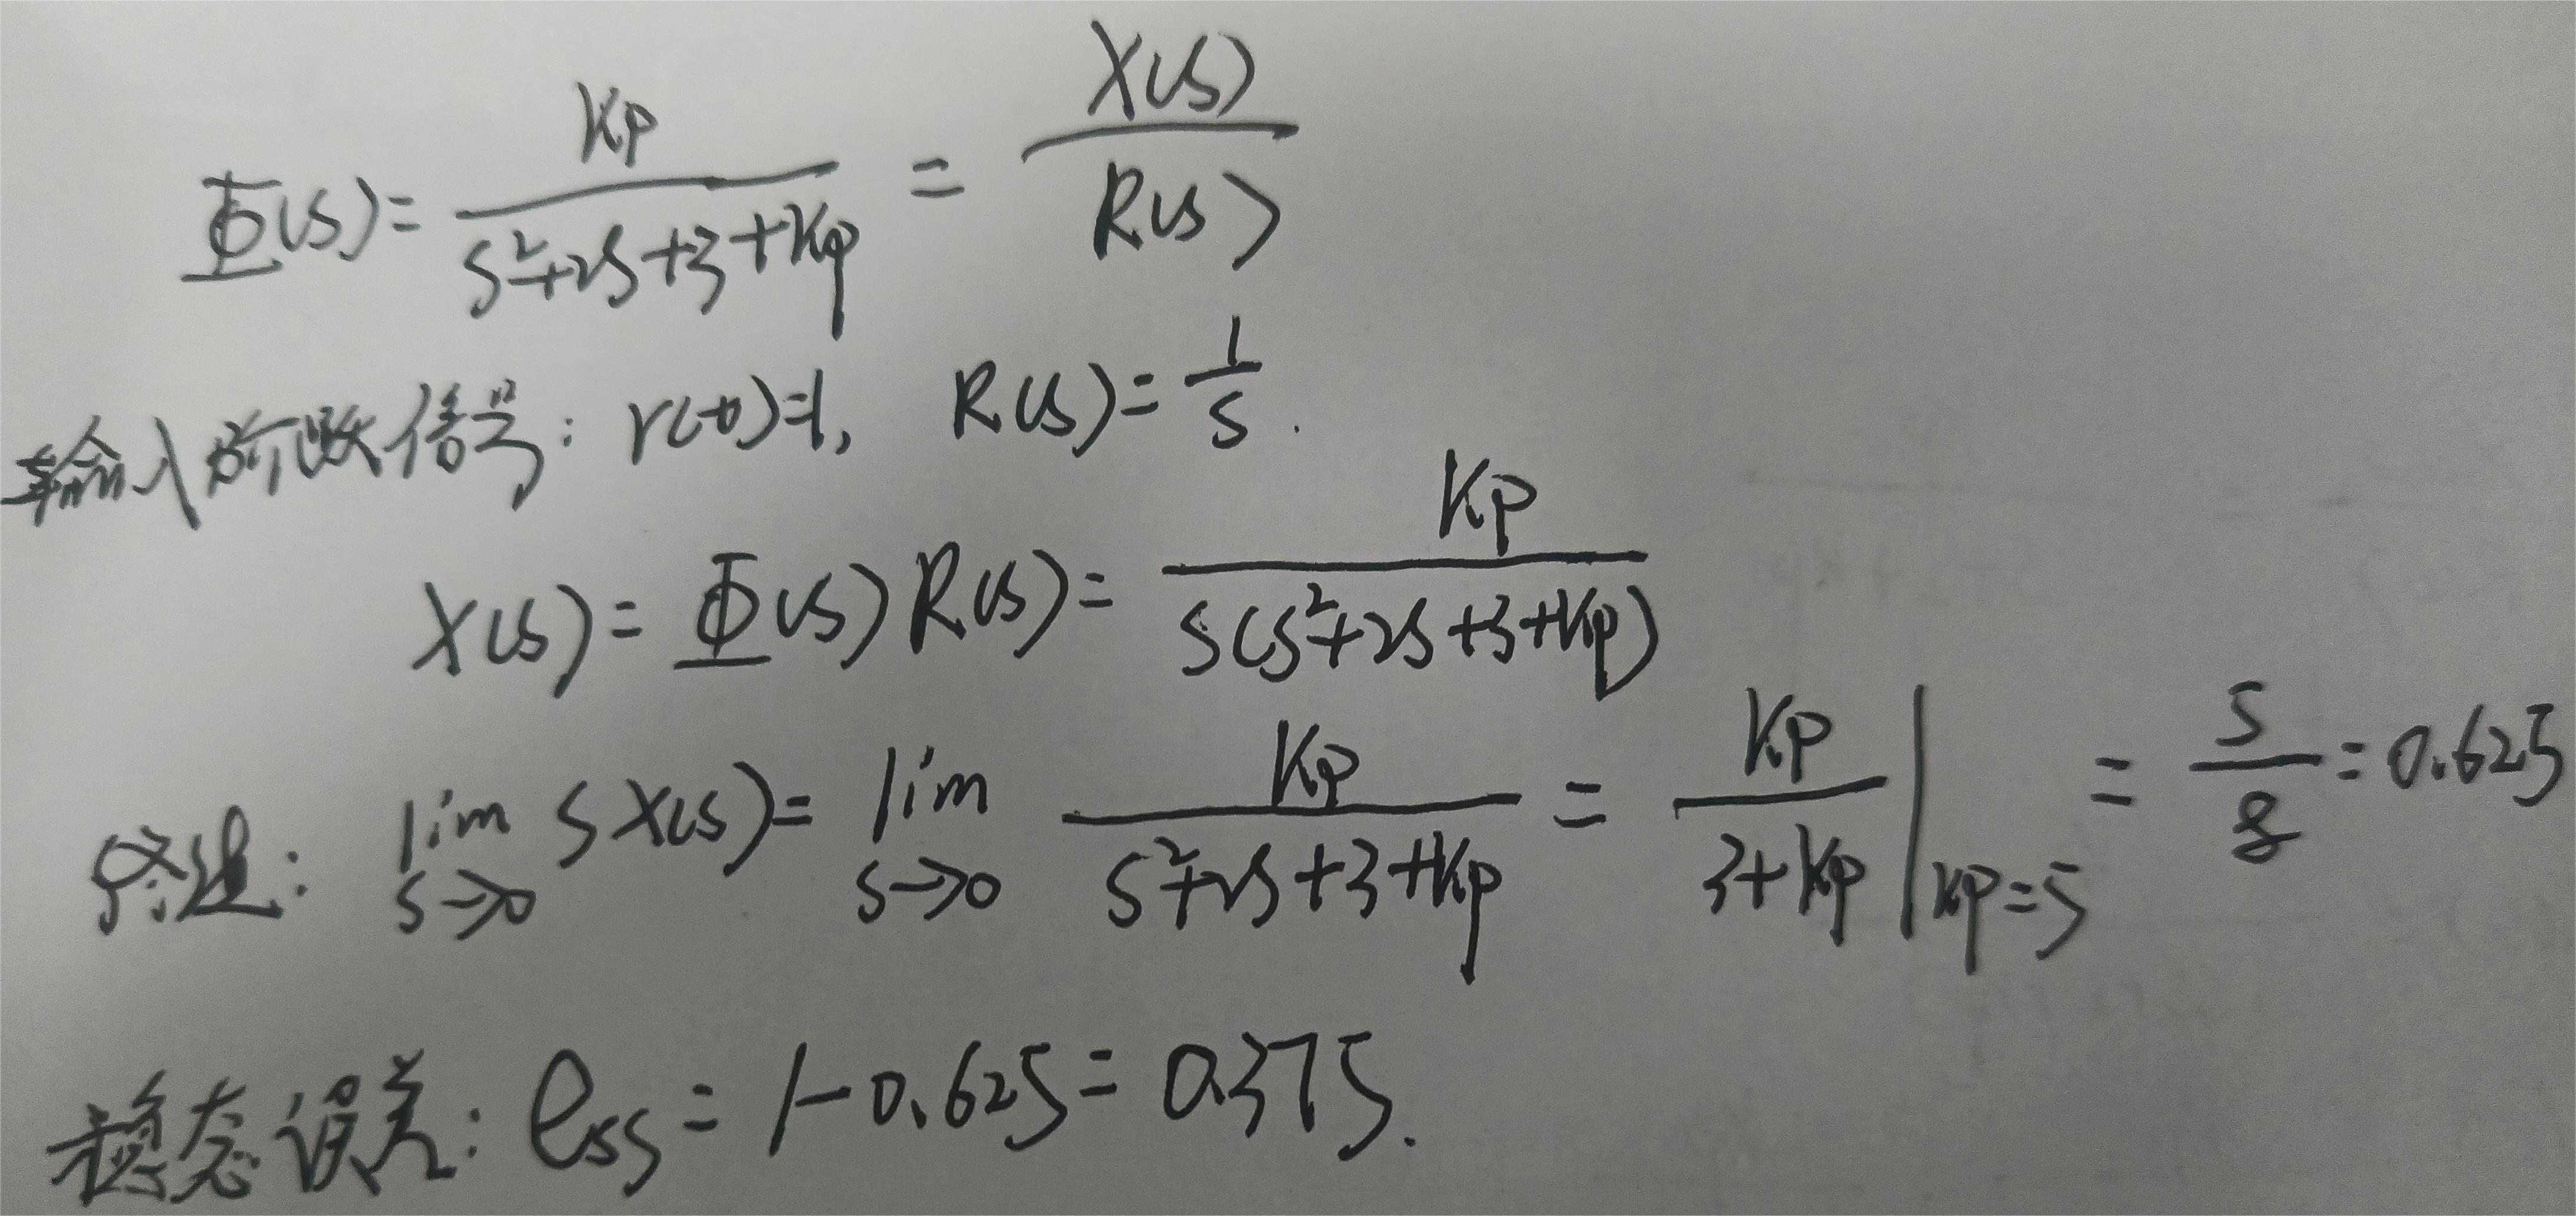 Φ(s)= Kp/(s²+2s+3+Kp) = X(s)/R(s)
输入阶跃信号: r(t)=1, R(s)=1/s.
X(s)=Φ(s)R(s)= Kp/(s(s²+2s+3+Kp))
终值: lim s→0 sX(s)= lim s→0 Kp/(s²+2s+3+Kp) = Kp/(3+Kp)|Kp=5 = 5/8 =0.625
稳态误差: ess = 1-0.625= 0.375.